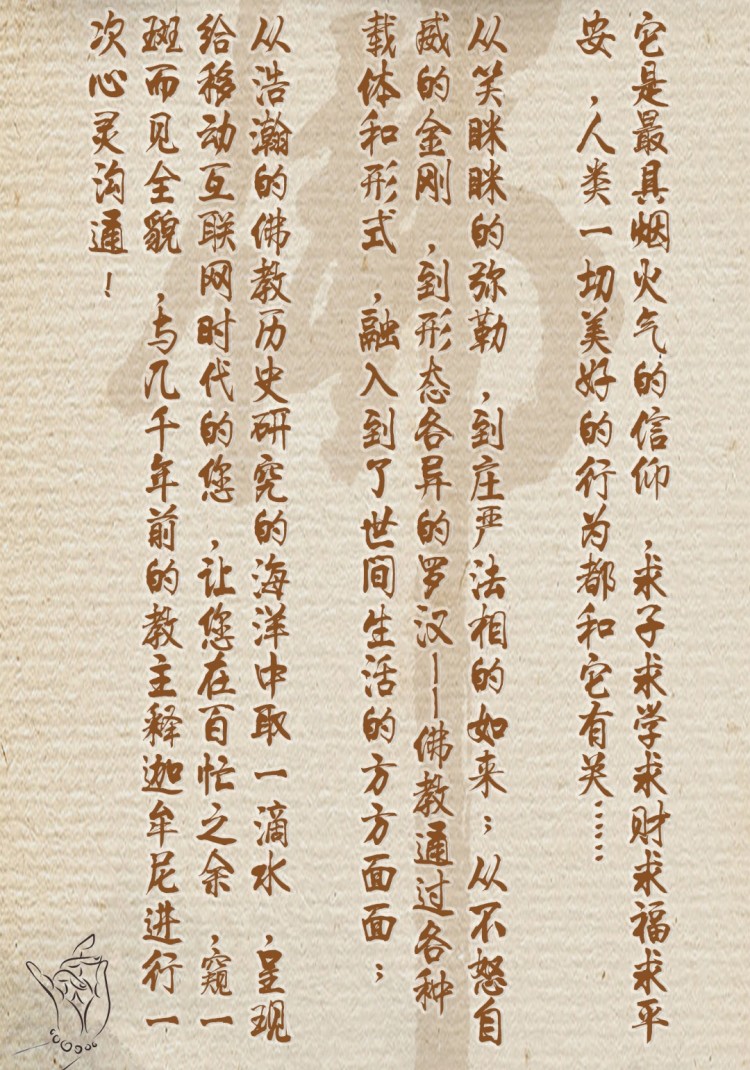 它是最具烟火气的信仰，求子求学求财求福求平
安，人类一切美好的行为都和它有关……
从笑眯眯的弥勒，到庄严法相的如来；从不怒自
威的金刚，到形态各异的罗汉——佛教通过各种
载体和形式，融入到了世间生活的方方面面；
从浩瀚的佛教历史研究的海洋中取一滴水，呈现
给移动互联网时代的您，让您在百忙之余，窥一
斑而见全貌，与几千年前的教主释迦牟尼进行一
次心灵沟通！